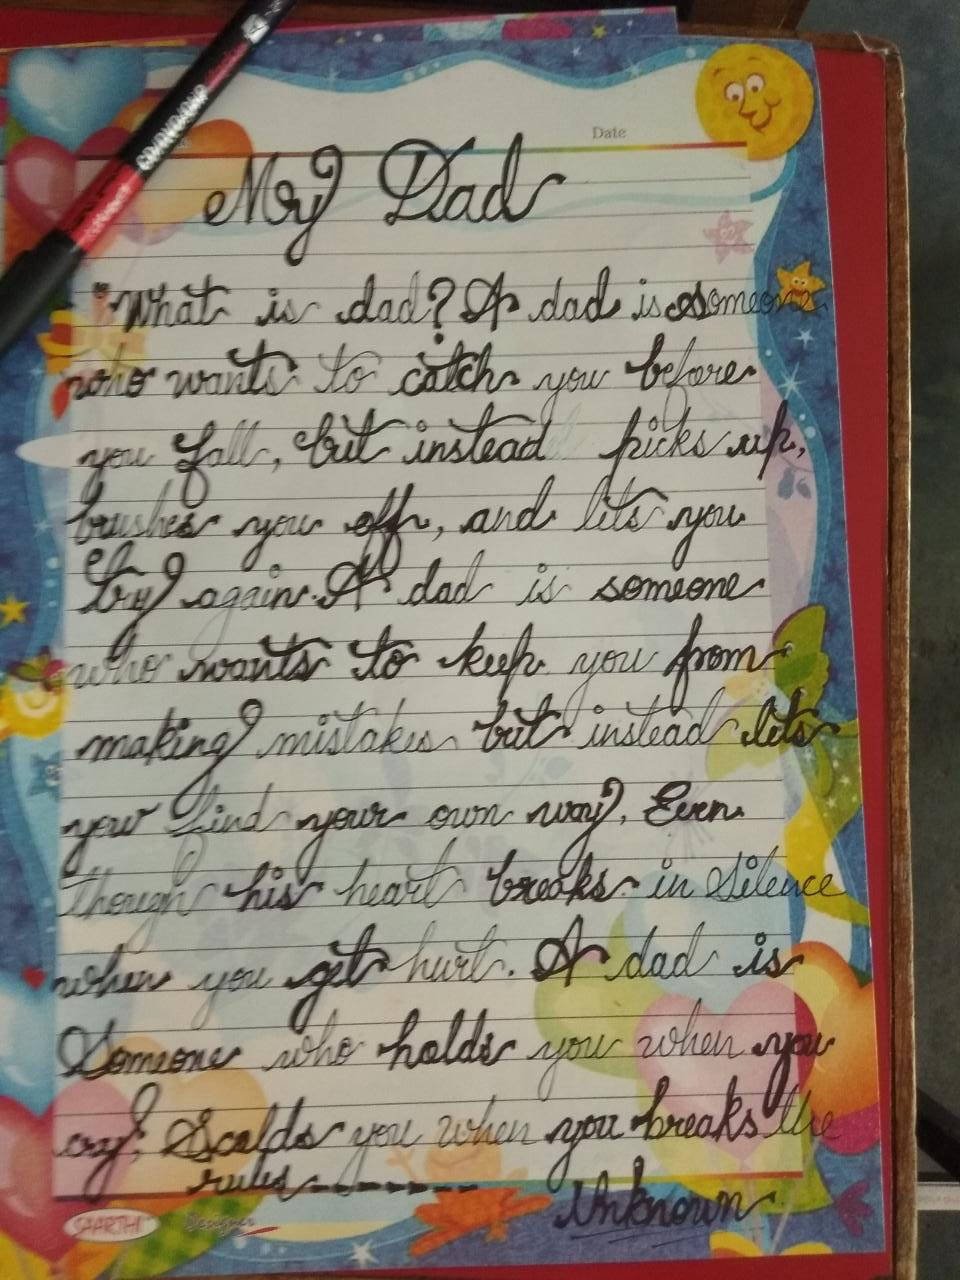 Date
My Dad
What is dad? A dad is someone
who wants to catch you before
you fall, but instead picks up,
brushes you off, and lets you
try again. A dad is someone
who wants to keep you from
making mistakes but instead lets
you find your own way. Even
though his heart breaks in Silence
when you get hurt. A dad is
Someone who holds you when you
cry, Scolds you when you breaks the
rules--------
Unknown
SAARTHI Designer